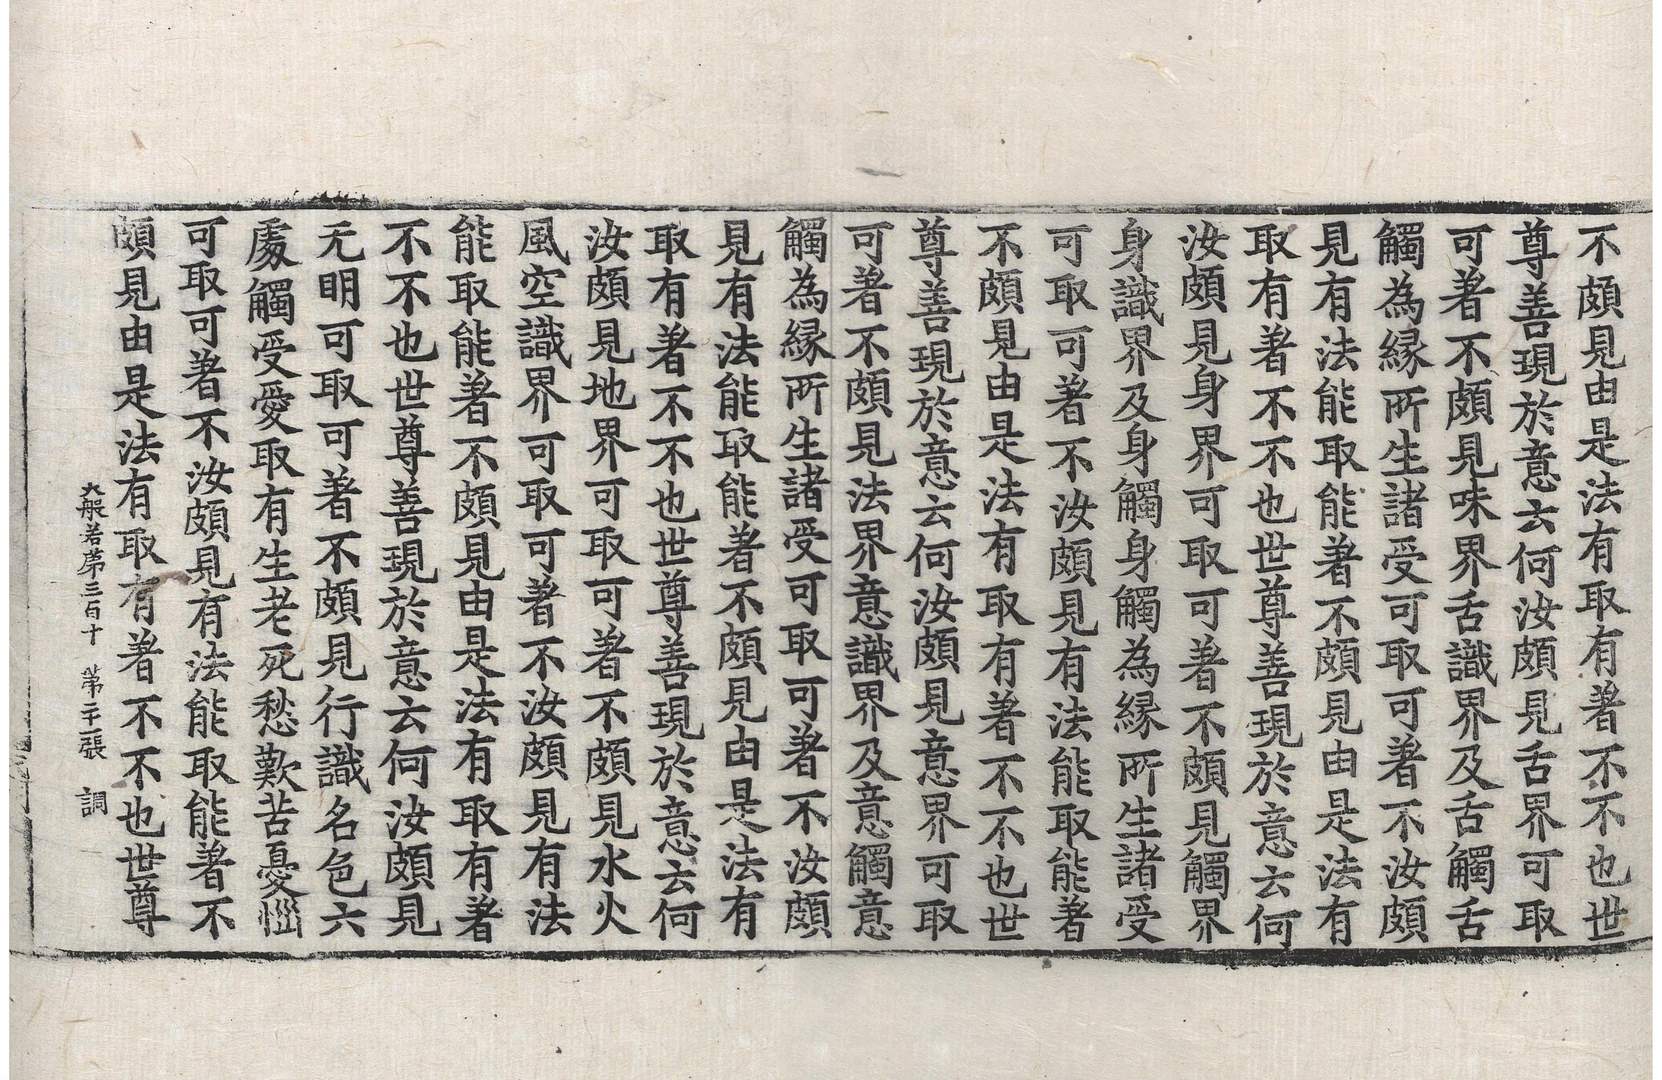 不頗見由是法有取有著不不也世
尊善現於意云何汝頗見舌界可取
可著不頗見味界舌識界及舌觸舌
觸為緣所生諸受可取可著不汝頗
見有法能取能著不頗見由是法有
取有著不不也世尊善現於意云何
汝頗見身界可取可著不頗見觸界
身識界及身觸身觸為緣所生諸受
可取可著不汝頗見有法能取能著
不頗見由是法有取有著不不也世
尊善現於意云何汝頗見意界可取
可著不頗見法界意識界及意觸意
觸為緣所生諸受可取可著不汝頗
見有法能取能著不頗見由是法有
取有著不不也世尊善現於意云何
汝頗見地界可取可著不頗見水火
風空識界可取可著不汝頗見有法
能取能著不頗見由是法有取有著
不不也世尊善現於意云何汝頗見
无明可取可著不頗見行識名色六
處觸受愛取有生老死愁歎苦憂惱
可取可著不汝頗見有法能取能著不
頗見由是法有取有著不不也世尊
大般若第三百十 第二十一張 調